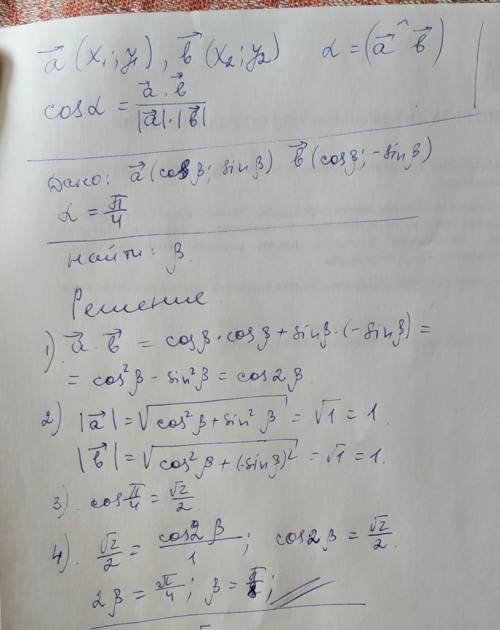 a⃗ (x₁; y₁), b⃗ (x₂; y₂)   α = (a⃗ ^ b⃗)
cos α = a⃗ · b⃗ / |a⃗| · |b⃗|
Дано: a⃗ (cos β; sin β)   b⃗ (cos β; -sin β)
α = π/4
Найти: β
Решение
1) a⃗ · b⃗ = cos β · cos β + sin β · (-sin β) =
= cos² β - sin² β = cos 2β
2) |a⃗| = √(cos² β + sin² β) = √1 = 1.
|b⃗| = √(cos² β + (-sin β)²) = √1 = 1.
3). cos π/4 = √2/2.
4). √2/2 = cos 2β / 1; cos 2β = √2/2.
2β = π/4; β = π/8;